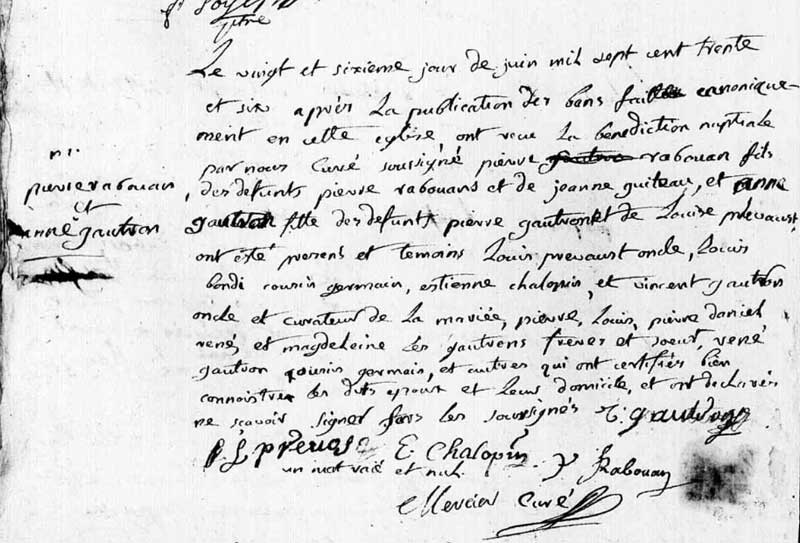 titre
Le vingt et sixieme jour de juin mil sept cent trente
et six après La publication des bans faitte canonique
ment en cette eglise ont receu La benediction nuptiale
par nous Curé soussigné pierre gautron rabouan fils
des defunts pierre rabouans et de jeanne guiteau, et anne
gautron fille des defunts pierre gautron et de Louise prevaust,
ont esté presens et temoins Louis prevaust oncle, Louis
bondi cousin germain, estienne chalopin, et vincent gautron
oncle et curateur de La mariée, pierre, Louis, pierre daniel
rené, et magdeleine Les gautrons freres et soeur, rené
gautron cousin germain, et autres qui ont certifiés bien
connoistre les dits epoux et Leur domicile, et ont declarés
ne scavoir signer fors les soussignés V. gautron
L prevost E. Chalopin P Rabouan
un mot raié et nul.
Mercier Curé
m.
pierre rabouan
et
anne gautron